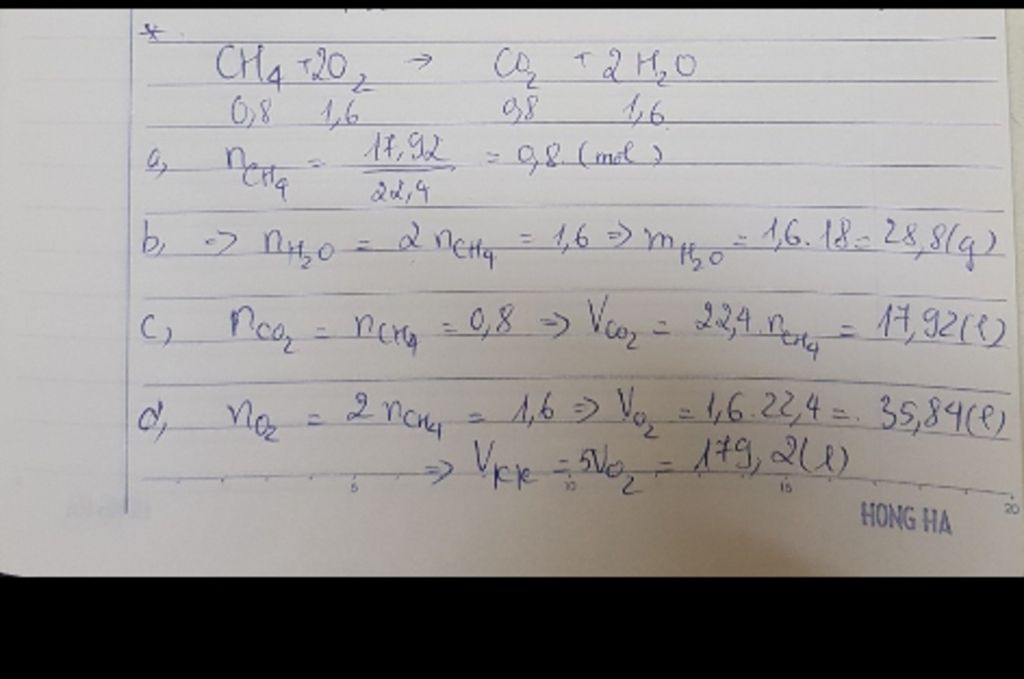 *
CH₄ + 2O₂ → CO₂ + 2H₂O
0,8 1,6 0,8 1,6
a, n_CH₄ = 17,92/22,4 = 0,8 (mol)
b, => n_H₂O = 2n_CH₄ = 1,6 => m_H₂O = 1,6.18 = 28,8(g)
c, n_CO₂ = n_CH₄ = 0,8 => V_CO₂ = 22,4.n_CH₄ = 17,92(l)
d, n_O₂ = 2n_CH₄ = 1,6 => V_O₂ = 1,6.22,4 = 35,84(l)
=> V_KK = 5V_O₂ = 179,2(l)
5 10 15 20
HONG HA